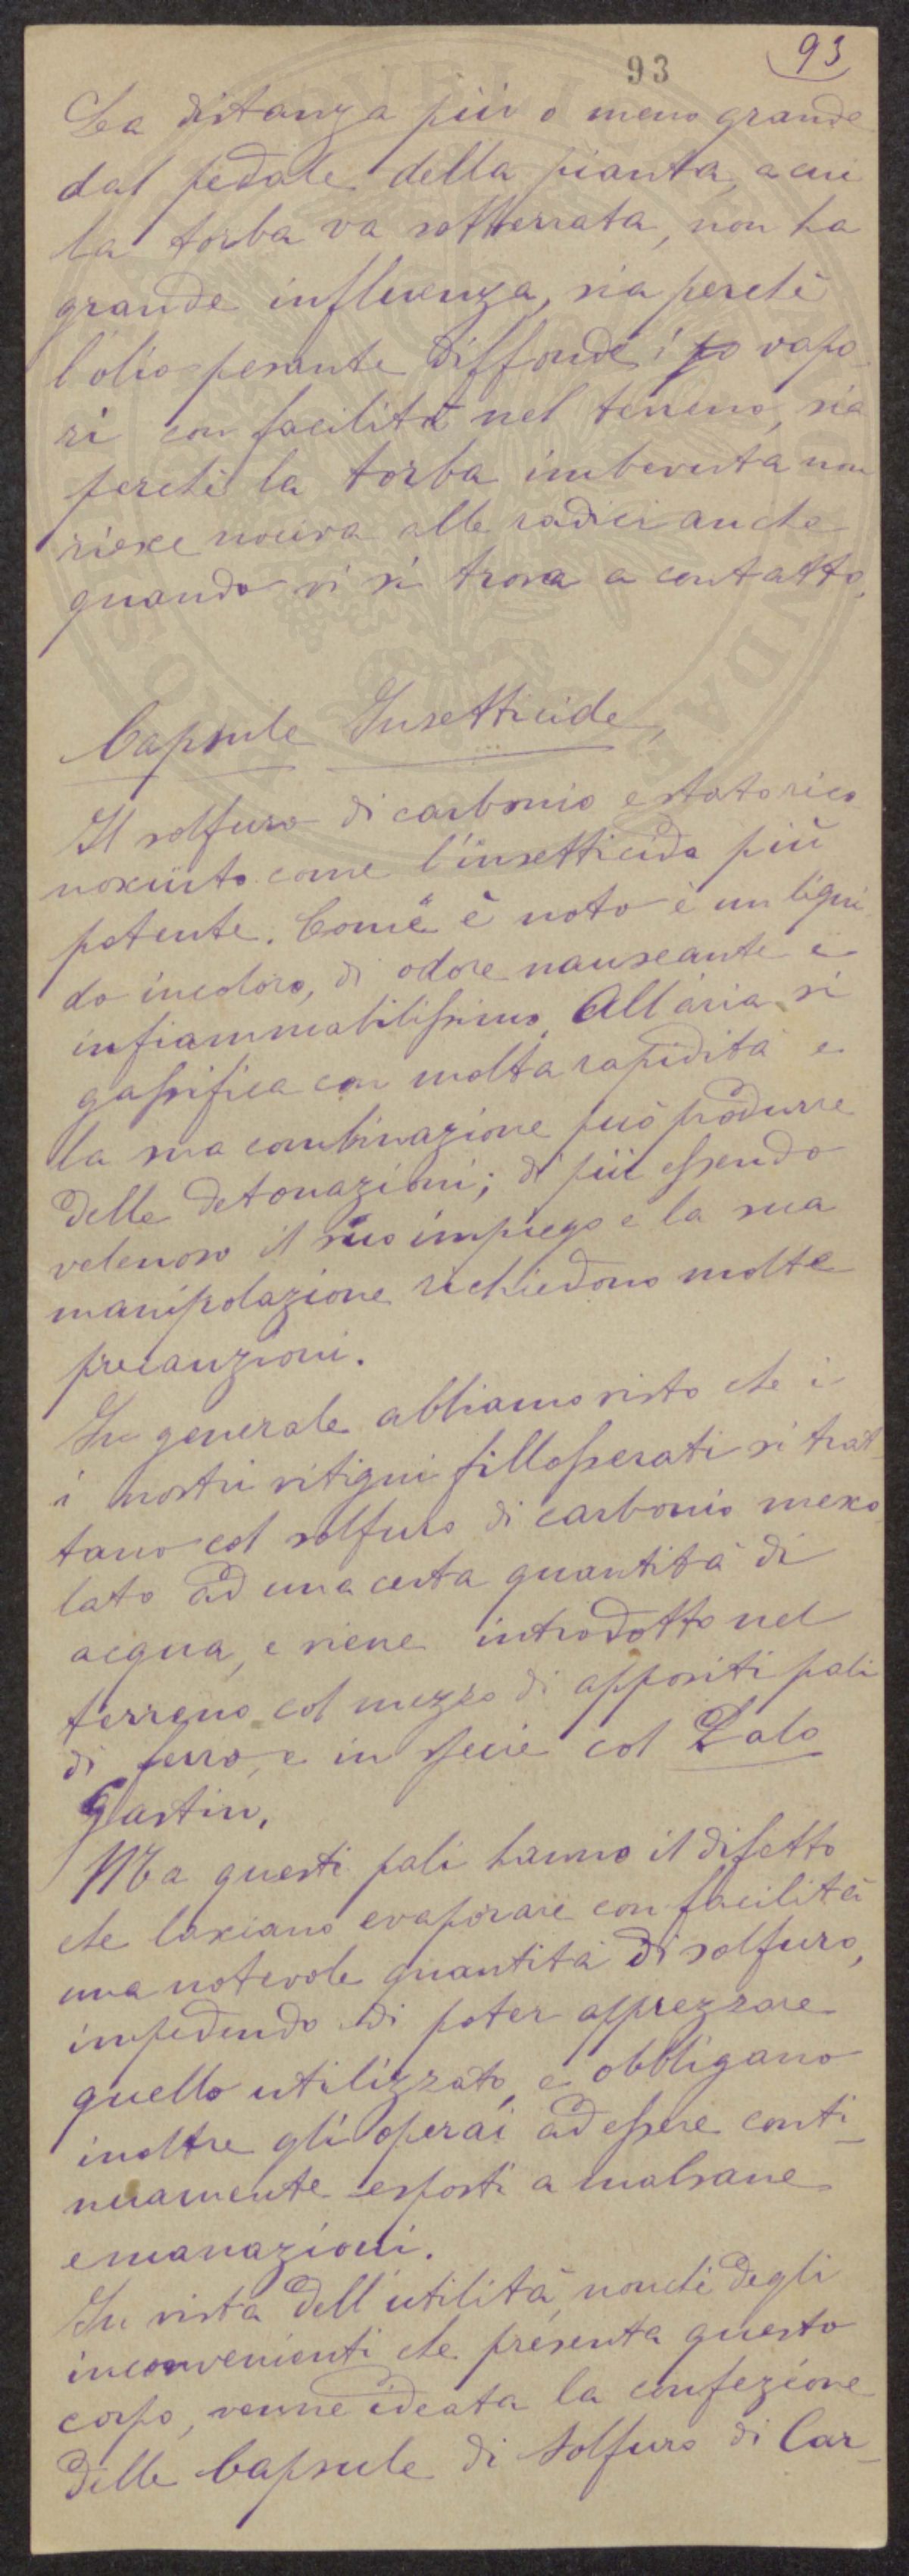 93
93
La distanza più o meno grande
dal pedale della pianta, a cui
la torba va sotterrata, non ha
grande influenza, sia perchè
l'olio pesante diffonde i po vapo
ri con facilità nel terreno, sia
perchè la torba imbevuta non
riesce nociva alle radici anche
quando vi si trova a contatto.
Capsule Insetticide,
Il solfuro di carbonio è stato rico
nosciuto come l'insetticida più
potente. Come è noto è un liqui
do incoloro, di odore nauseante e
infiammabilissimo. All'aria si
gassifica con molta rapidità e
la sua combinazione può produrre
delle detonazioni; di più essendo
velenoso il suo impiego e la sua
manipolazione richiedono molte
precauzioni.
In generale abbiamo visto che i
i nostri vitigni fillosserati si trat
tano col solfuro di carbonio mesco
lato ad una certa quantità di
acqua, e viene introdotto nel
terreno col mezzo di appositi pali
di ferro, e in specie col Palo
Gastin.
Ma questi pali hanno il difetto
che lasciano evaporare con facilità
una notevole quantità di solfuro,
impedendo di poter apprezzare
quello utilizzato, e obbligano
inoltre gli operai ad essere conti_
nuamente esposti a malsane
emanazioni.
In vista dell'utilità, nonchè degli
inconvenienti che presenta questo
corpo, venne ideata la confezione
delle Capsule di Solfuro di Car_